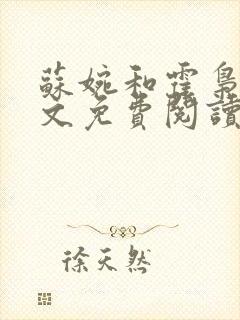 蘇婉和霍梟
文免費閱讀
徐天然